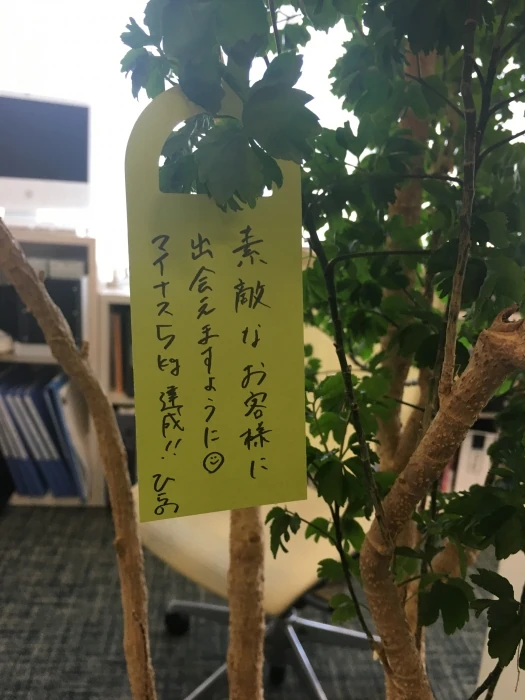 素敵なお客様に
出会えますように☺
マイナス5kg 達成!!